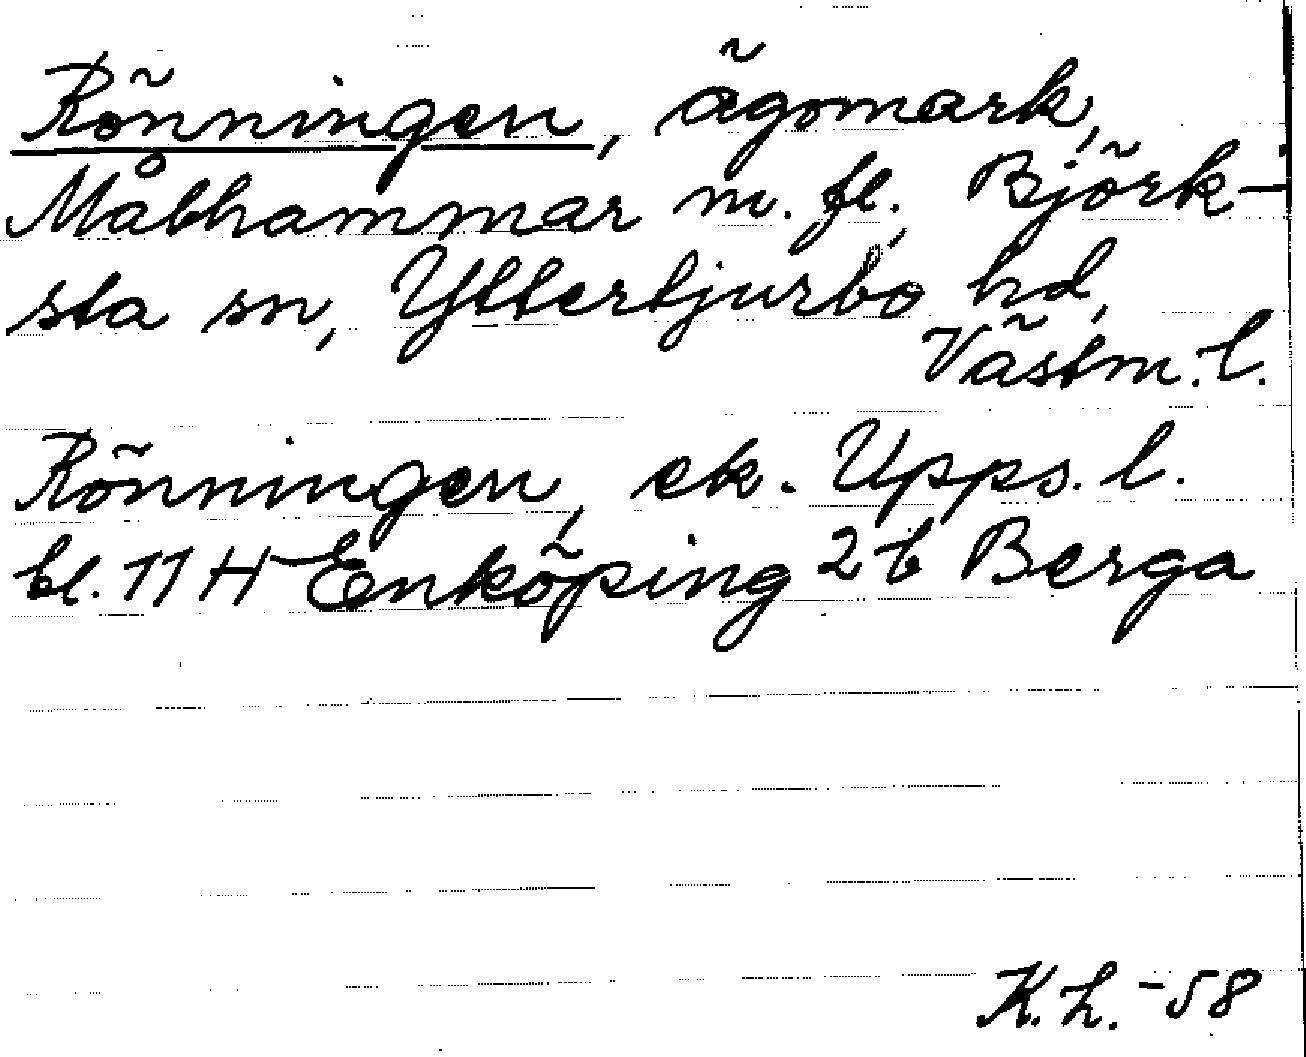 Rönningen, ägomark,
Målhammar m. fl. Björk-
sta sn, Yttertjurbo hd,
Västm. l.
Rönningen, ek. Upps. l.
bl. 11 H Enköping 2 b Berga
K.L. -58